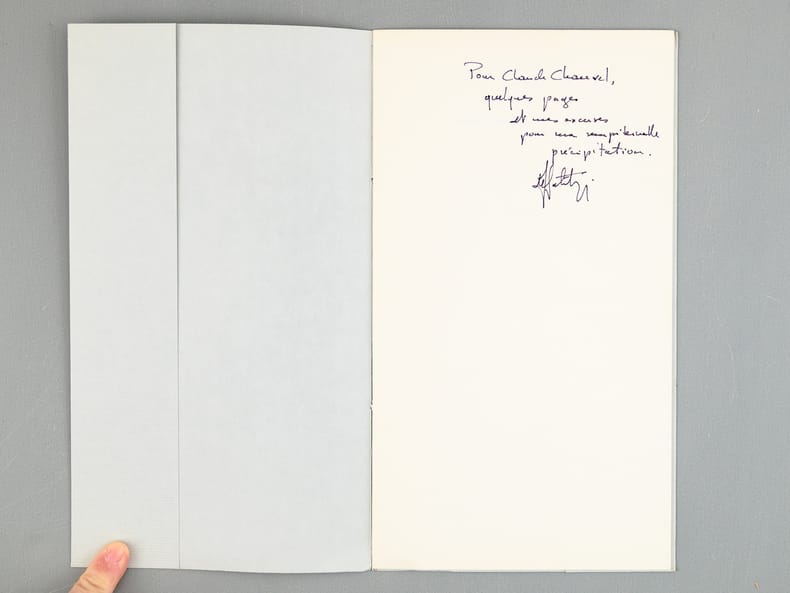 Pour Claude Chauvel,
quelques pages
et mes excuses
pour ma sempiternelle
précipitation.